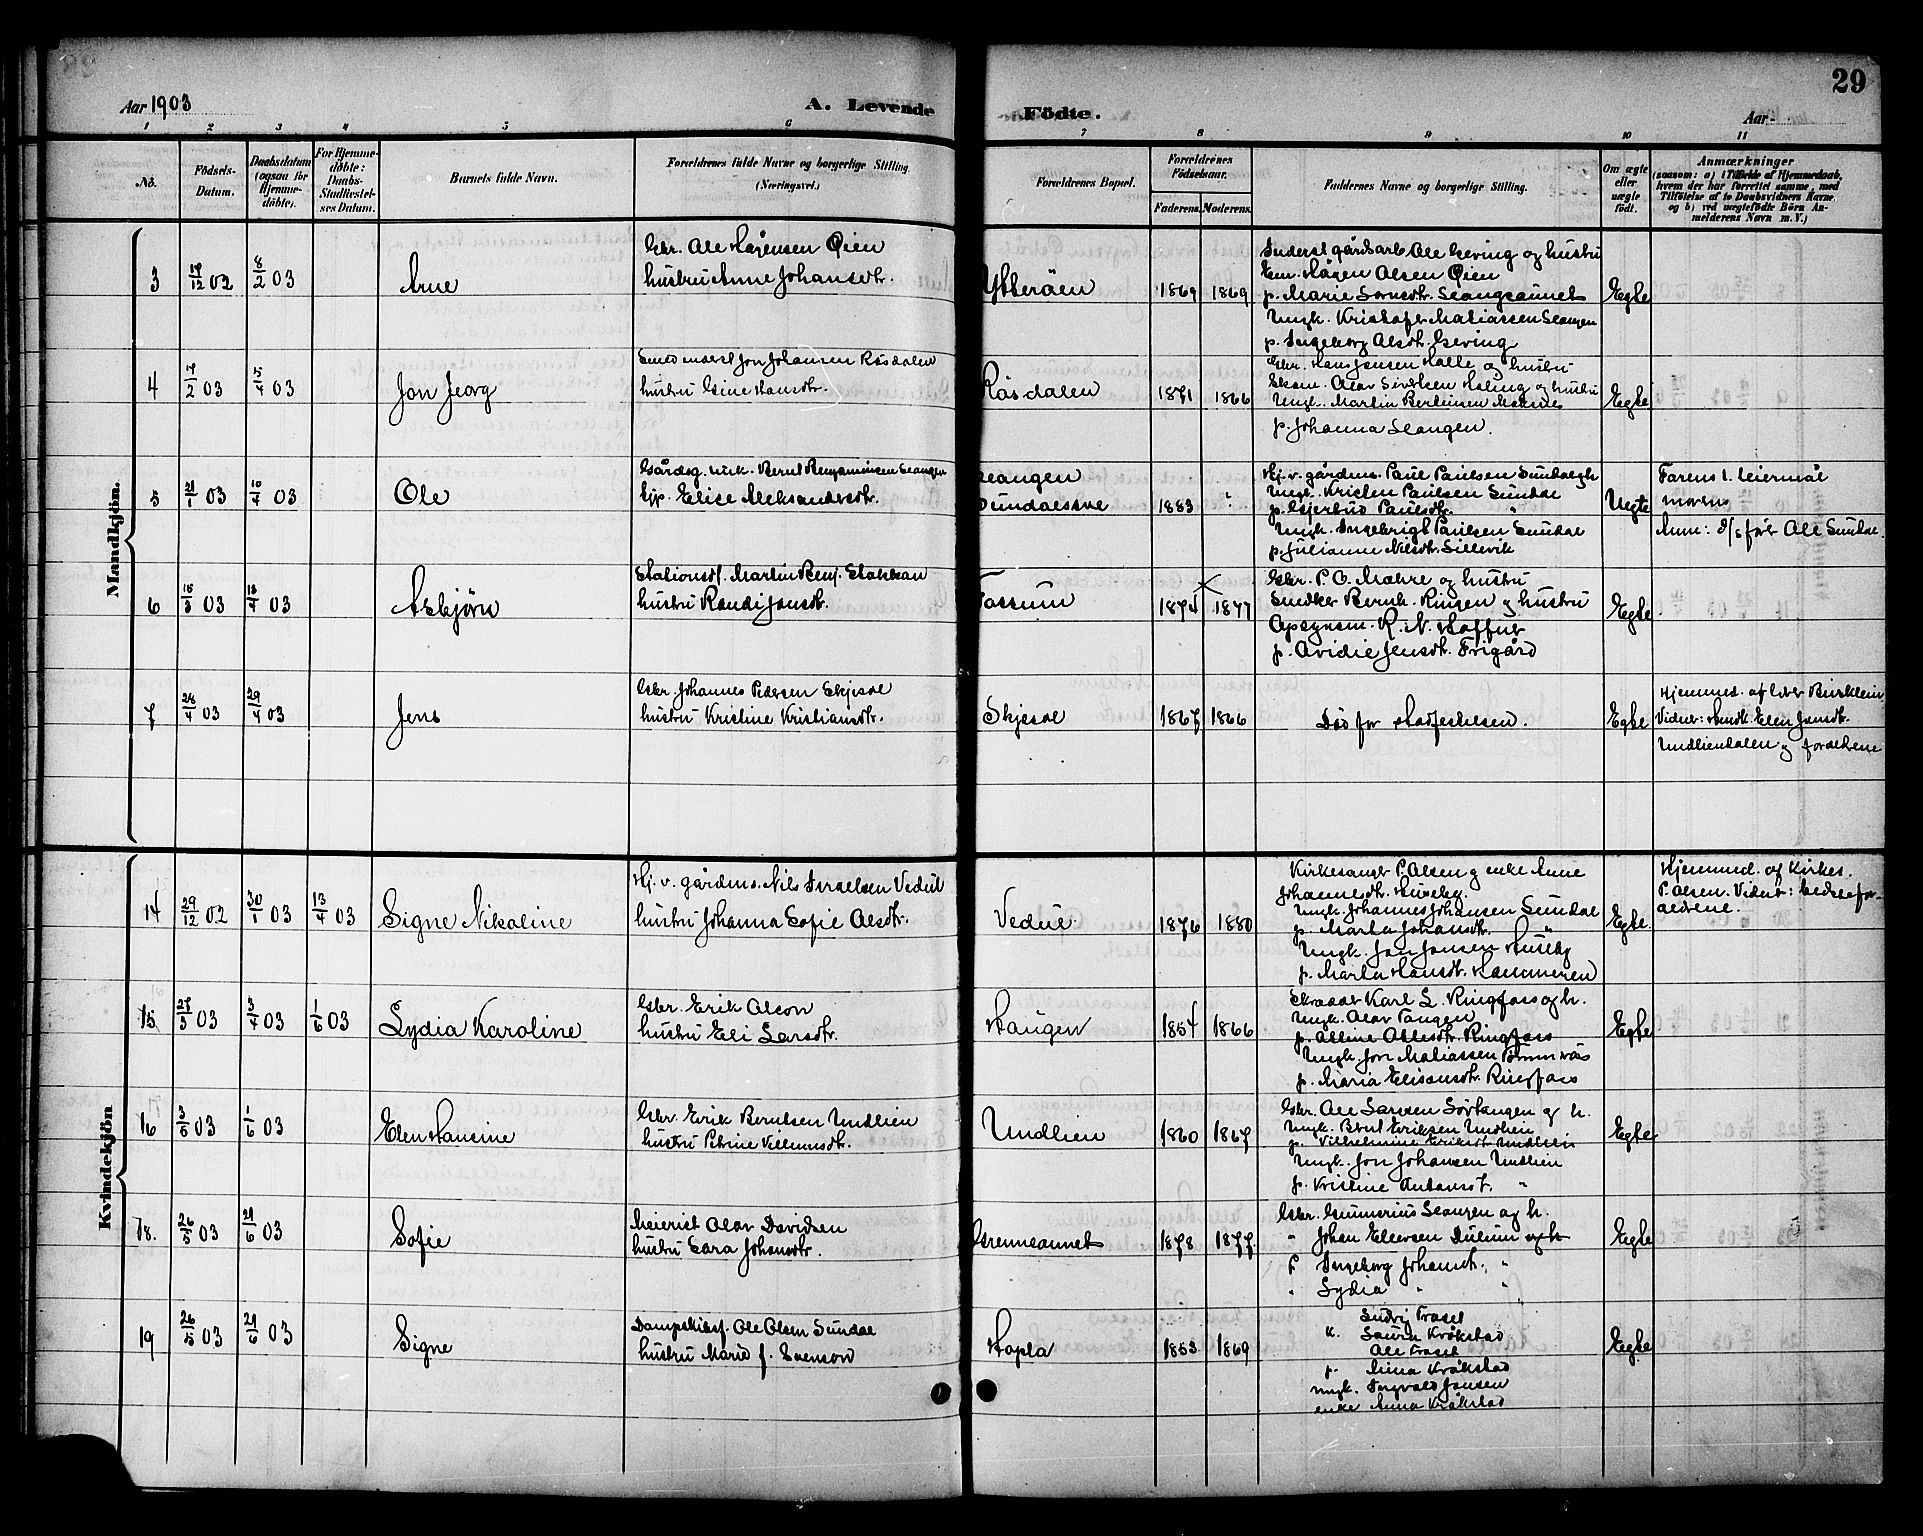 29
Aar 1903
A. Levende
Födte.
Aar
1 2 3 4 5 6 7 8 9 10 11
No.
Födsels-
Datum.
Daabsdatum
(ogsaa for
Hjemme-
döbte).
For Hjemme-
döbte:
Daabs-
Stadfestel-
ses Datum.
Barnets fulde Navn.
Forældrenes fulde Navne og borgerlige Stilling
(Næringsvei.)
Forældrenes Bopæl.
Forældrenes
Födselsaar.
Faderens. Moderens.
Faddernes Navne og borgerlige Stilling.
Om ægte
eller
uægte
födt.
Anmærkninger
(saasom: a) i Tilfælde af Hjemmedaab,
hvem der har forrettet samme, med
Tilföielse af to Daabsvidners Navne
og b) ved uægtefödte Börn An-
melderens Navn m. V.)
Mandkjön.
3 19/12 02 8/2 03 Arne
Gbr. Ole Hågensen Øien
hustru Anne Johansdtr.
Ytterøen 1869 1869
Inderst gårdsarb Ole Geving og hustru
Em. Hågen Olsen Øien
p. Marie Leangsaunet
Ungk. Kristofer Matiassen Leangen
p. Ingeborg Olsdt. Geving
Egte
4 19/2 03 5/4 03 Jon Georg
Smed inderst Jon Johansen Råsdalen
hustru Gine Hansdtr.
Råsdalen 1871 1866
Gbr. Hans Jensen Halle og hustru
Olav og hustru
Ungk. Martin
p. Johanna Leangen.
Egte
5 21/1 03 10/4 03 Ole
Gårdsg. ungk. Bernt Benjaminsen Leangen
tjp. Elise Aleksandersdtr.
Leangen
Sundalsove 1883 "
Hj. v. gårdens. Paul Paulsen Sundal
Ungk. Kristen Paulsen Sundal
p. Gjertrud Paulsdtr. "
Ungk. Ingebrigt Paulsen Sundal
p. Julianne Nilsdt. Sillevik
Uegte
Farens 1. leiermål
morens —
Anm: Ole Sundal.
6 15/3 03 13/4 03 Asbjørn
Stationsf. Martin Benj. Stokkan
hustru Randi Jonsdtr.
Fossum 1874 1877
Gbr. P. O. Mahre og hustru
Snedker Bernh. Ringen og hustru
Opsynsm. R. N.
p. Ovidie Jensdt. Frigård
Egte
7 24/4 03 29/4 03 Jens
Gbr. Johannes Pedersen Skjesol
hustru Kristine Kristiansdtr.
Skjesol 1867 1866
Død før stadfestelsen.
Egte
Hjemmed. af
Vidner: Elen Jonsdt.
Undliendalen og forældrene
Kvindekjön
14 29/12 02 30/1 03 13/4 03 Signe Nikoline
Hj. v. gårdens. Nils Israelsen Vedul
hustru Johanna Sofie Olsdtr.
Vedul 1876 1880
Kirkesanger P. Olsen og enke Anne
Johannesdt. Huseby.
Ungk. Johannes Johansen Sundal
p. Marta Johansdt. "
Ungk. Jon Jonsen Huseby
p. Marta Hansdt. Hammeren
Egte
Hjemmed. af Kirkes.
P. Olsen. Vidner: bedstefor-
ældrene.
15 27/3 03 3/4 03 1/6 03 Lydia Karoline
Gbr. Erik Olson
hustru Eli Larsdtr.
Haugen 1854 1866
Karl L. Ringsaas og h.
Ungk. Olav Tangen
p. Olline Ringsaas
Ungk. Jon Matiassen
p. Maria Ringsaas
Egte
16 3/5 03 1/6 03 Elen Hansine
Gbr. Erik Berntsen Undlien
hustru Petrine Villumsdt.
Undlien 1860 1867
Gbr. Ole Larssen Sørtangen og h.
Ungk. Bernt Eriksen Undlien
p. Vilhelmine Eriksdt Undlien
Ungk. Jon Johansen Undlien
p. Kristine Antonsdt. "
Egte
18. 26/5 03 21/6 03 Sofie
Meierist Olav Davidsen
hustru Sara Johansdtr.
Grenneaunet 1878 1877
Gbr. Gunnerius Leangen og h.
" Johan Ellevsen Dullum og h
p. Ingeborg Johansdt. "
" Lydia " "
Egte
19 26/5 03 21/6 03 Signe
Dampskibsf. Ole Olsen Sundal
hustru Marie f. Svensson
Hopla 1853 1869
Ludvig Frasel
K. Laura Kråkstad
Ole Frasel
p. Anna Kråkstad
Ungk. Ingvald Jonsen
enke Anna Kråkstad
Egte